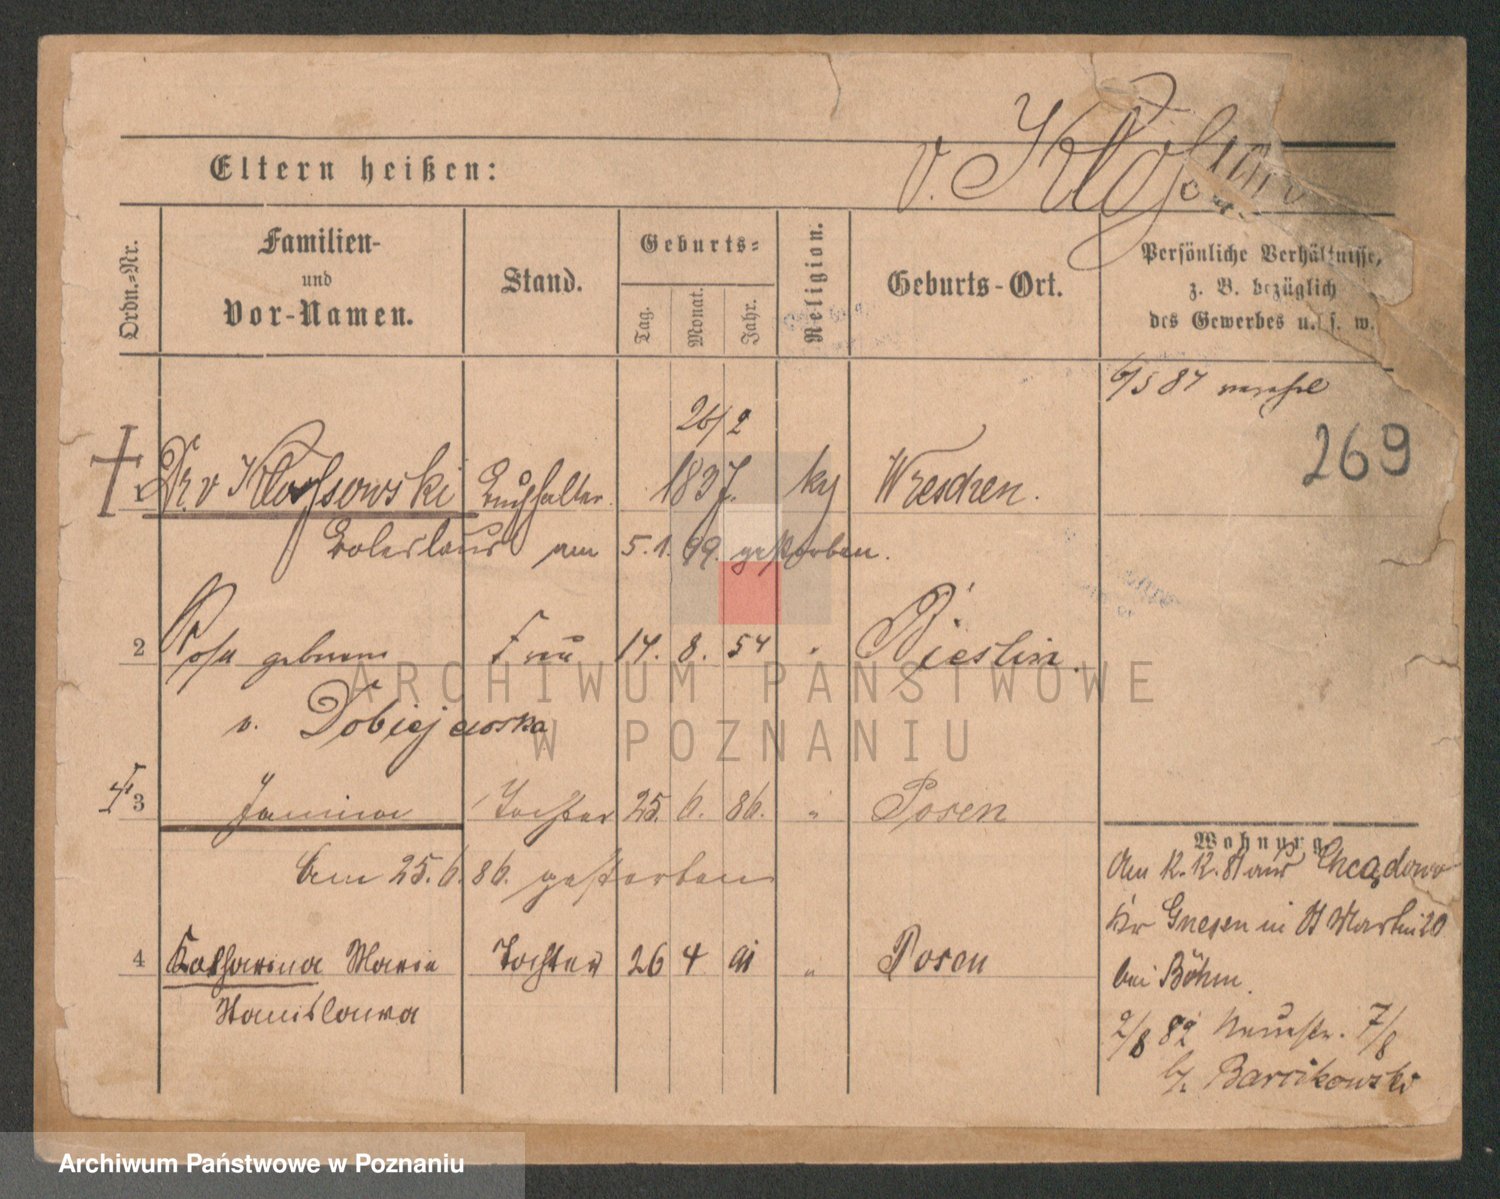 v. Kloss
Eltern heißen:
Ordn.-Nr.
Familien-
und
Vor-Namen.
Stand.
Geburts-
Tag.
Monat.
Jahr.
Religion.
Geburts-Ort.
Persönliche Verhältnisse,
z. B. bezüglich
des Gewerbes u. s. w.
6/5 87
26/2
269
1 v Klossowski Buchhalter. 1837. Wreschen.
Boleslaus am 5. 1. 99. gestorben.
2 Rosa geborene Frau 14. 8. 54 " Bieslin.
v. Dobiejewska
3 Janina Tochter 25. 6. 86. " Posen
Am 25. 6. 86. gestorben
4 Katharina Maria Tochter 26 4 91 " Posen
Stanislawa
Wohnung.
Am 12. 12. 81 aus Chcądowo
Kr Gnesen in St Martin 20
bei Böhm.
2/8 82 Neuestr. 7/8
b/. Barcikowski
ARCHIWUM PAŃSTWOWE
W POZNANIU
Archiwum Państwowe w Poznaniu